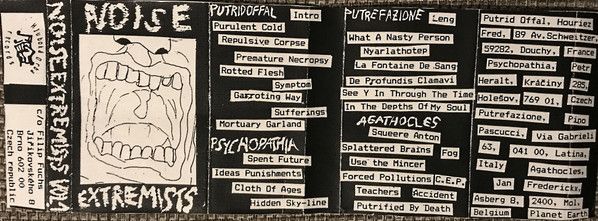 c/o Filip Fuchs
8
Brno 602 00
Czech republic
NOISE EXTREMISTS VOL.1
NOISE
EXTREMISTS
PUTRID OFFAL
Intro
Purulent Cold
Repulsive Corpse
Premature Necropsy
Rotted Flesh
Symptom
Garroting Way
Sufferings
Mortuary Garland
PSYCHOPATHIA
Spent Future
Ideas Punishments
Cloth Of Ages
Hidden Sky-line
PUTREFAZIONE
Leng
What A Nasty Person
Nyarlathotep
La Fontaine De Sang
De Profundis Clamavi
See Y In Through The Time
In The Depths Of My Soul
AGATHOCLES
Squeere Anton
Splattered Brains
Fog
Use the Mincer
Forced Pollutions
C.E.P.
Teachers
Accident
Putrified By Death
Putrid Offal, Houriez
Fred. 89 Av.Schweitzer.
59282. Douchy. France
Psychopathia. Petr
Heralt. Kráčiny 285.
Holešov. 769 01. Czech
Putrefazione. Pino
Pascucci. Via Gabrieli
63. 041 00. Latina.
Italy Agathocles,
Jan Fredericks,
Asberg 8. 2400. Mol.
Belgium Planet Earth